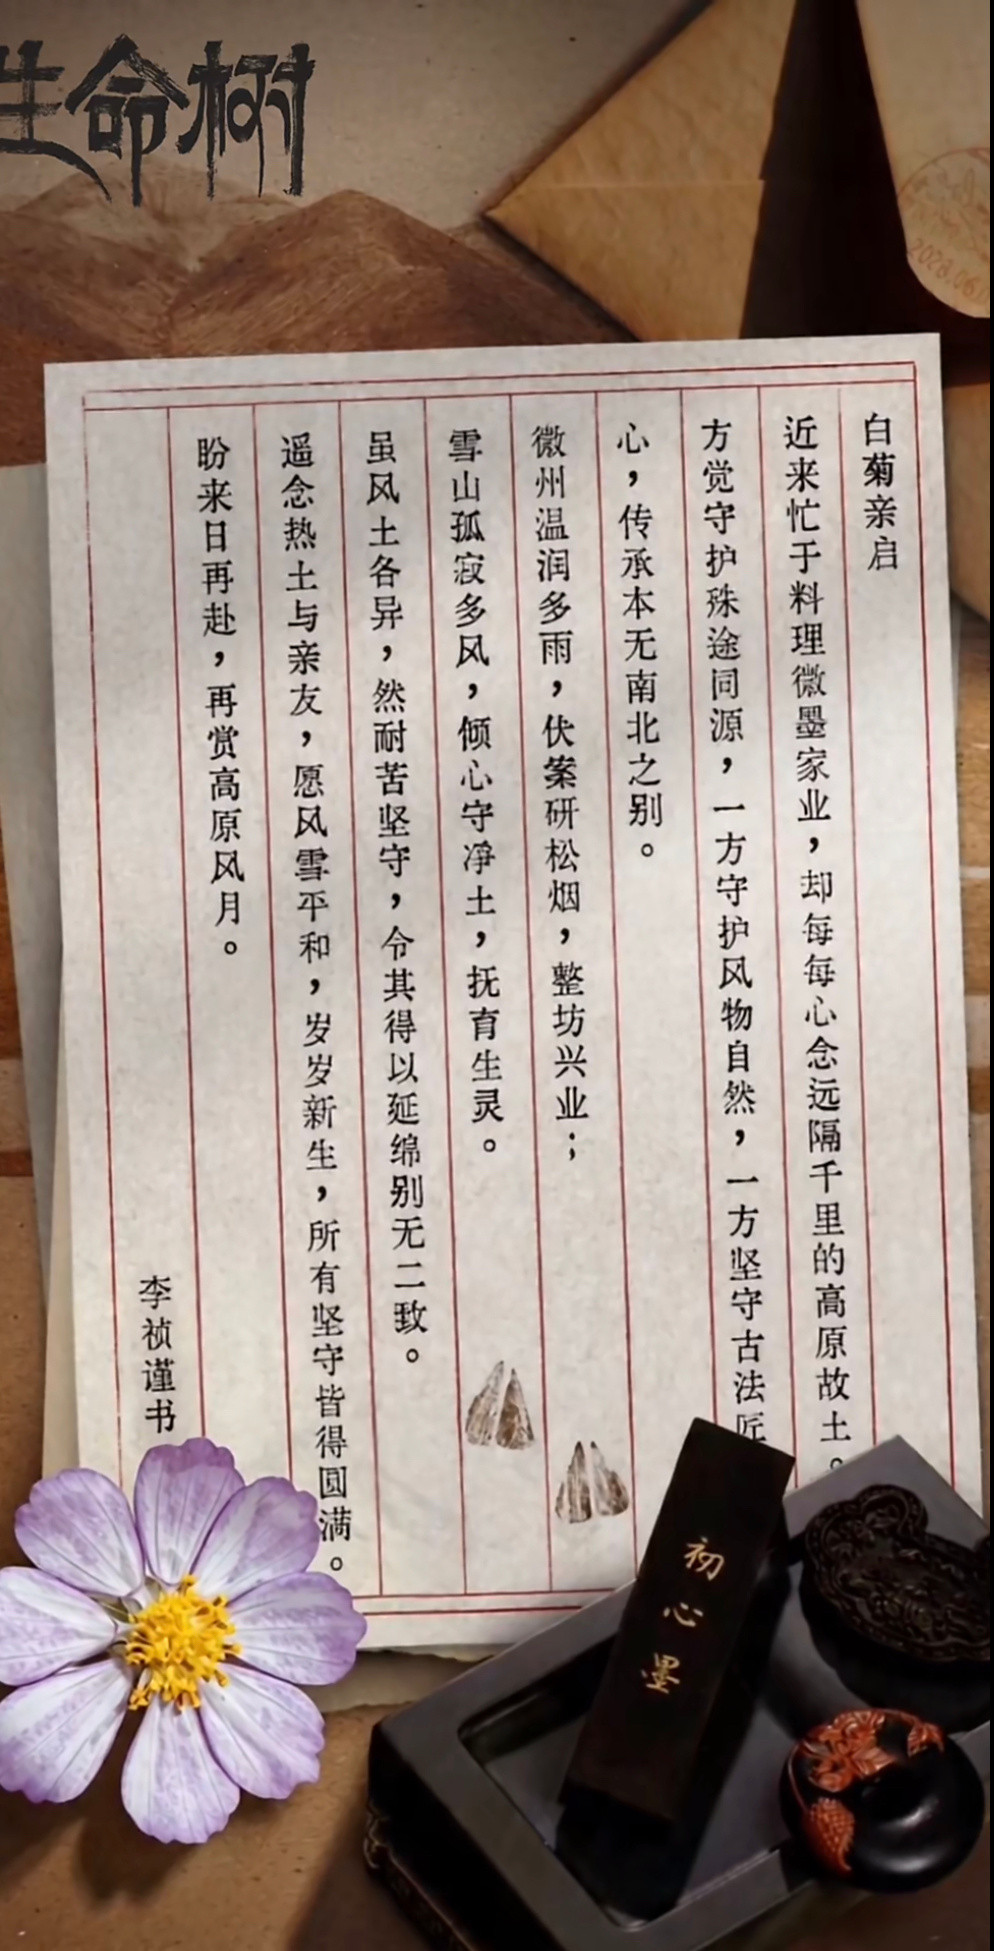 生命树
2026.06.0
白菊亲启
近来忙于料理徽墨家业，却每每心念远隔千里的高原故土。
方觉守护殊途同源，一方守护风物自然，一方坚守古法匠
心，传承本无南北之别。
徽州温润多雨，伏案研松烟，整坊兴业；
雪山孤寂多风，倾心守净土，抚育生灵。
虽风土各异，然耐苦坚守，令其得以延绵别无二致。
遥念热土与亲友，愿风雪平和，岁岁新生，所有坚守皆得圆满。
盼来日再赴，再赏高原风月。
李祯谨书
初心墨